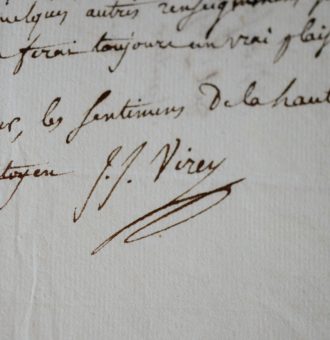 quelques autres renseignemens
ferai toujours un vrai plais
les sentimens de la haut
toyen J. J. Virey